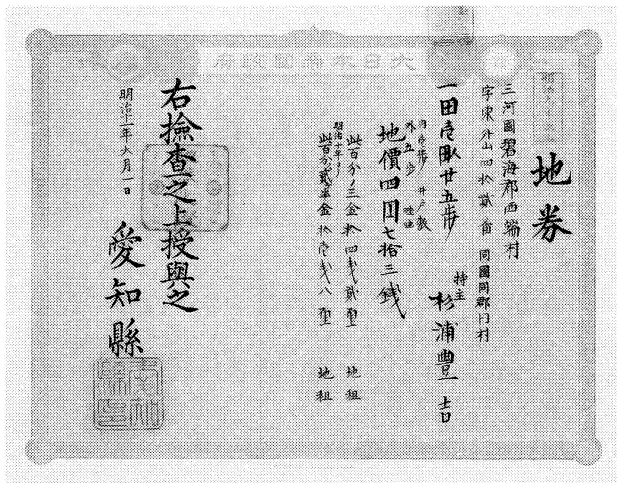 大日本帝國政府
地券
三河國碧海郡西端村
字東外山四拾貳番 同國同郡同村
一田壱畝廿五歩 持主 杉浦豐吉
内壱歩 井戸敷
外五歩 畦畔
地價四圓七拾三錢
此百分ノ三金拾四錢貳厘 地租
明治十年ヨリ
此百分ノ貳半金拾壱錢八厘 地租
右撿査之上授與之
明治十一年六月一日
愛知縣